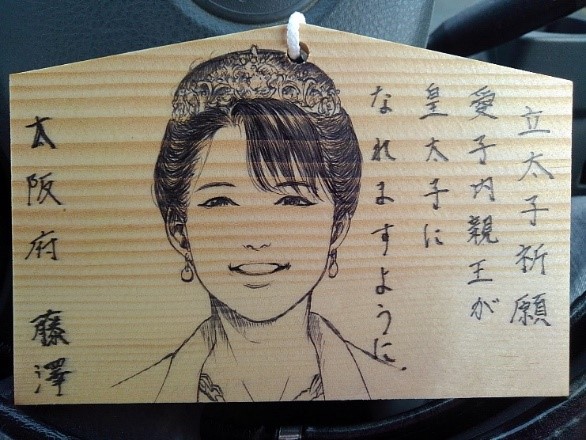 立太子祈願
愛子内親王が
皇太子に
なれますように.
大阪府 藤澤